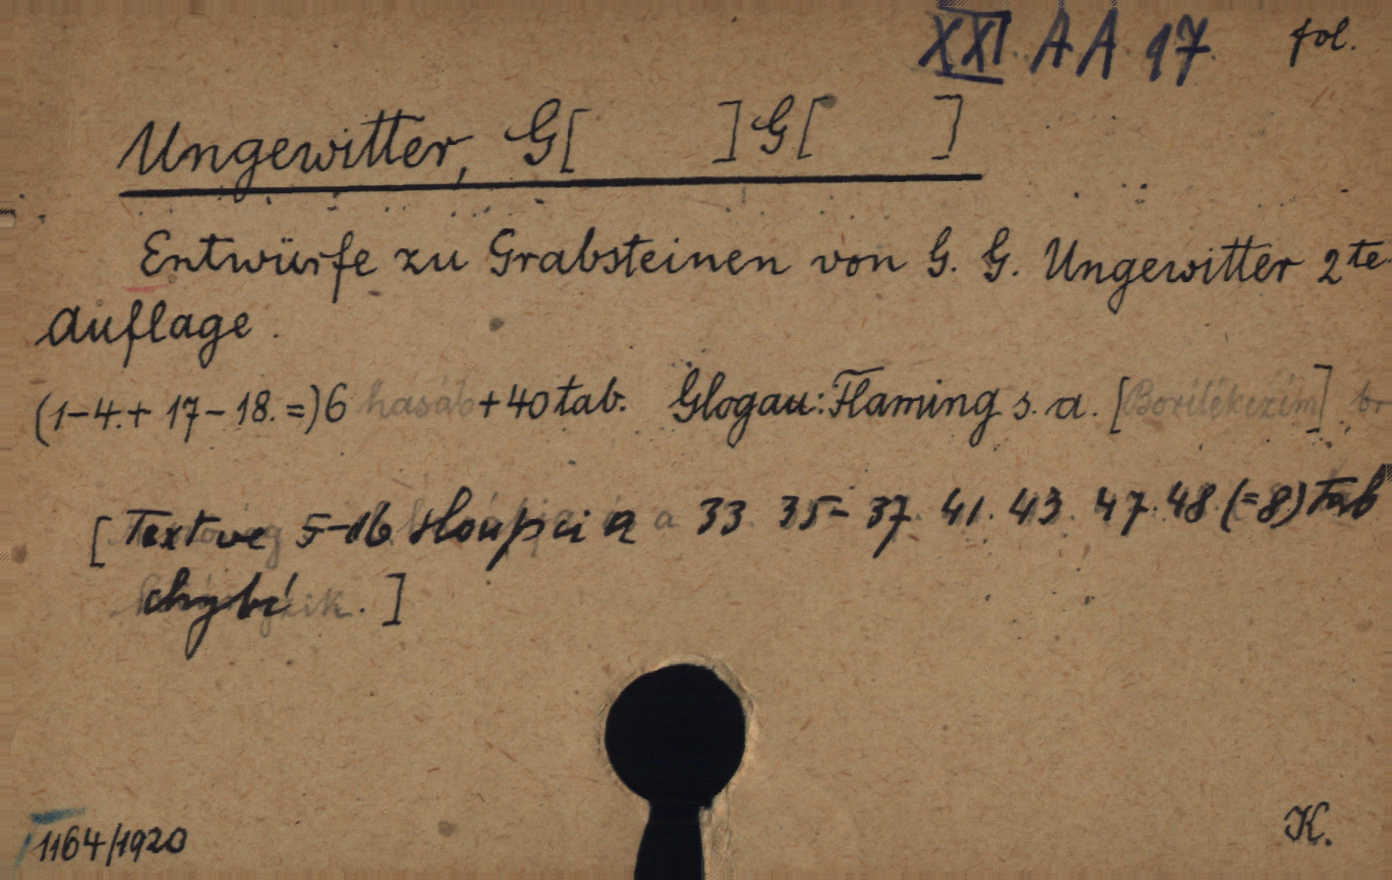 XXI. AA 17. fol.
Ungewitter, G[ ] G[ ]
Entwürfe zu Grabsteinen von G. G. Ungewitter 2te
Auflage.
(1-4.+ 17-18.=)6 hasáb +40 tab. Glogau: Flaming s. a. [Borítékcím] br
[Text ve 5-16 sloupci a a 33. 35-37. 41. 43. 47. 48 (=8) tab
chybí .]
1164/1920
K.